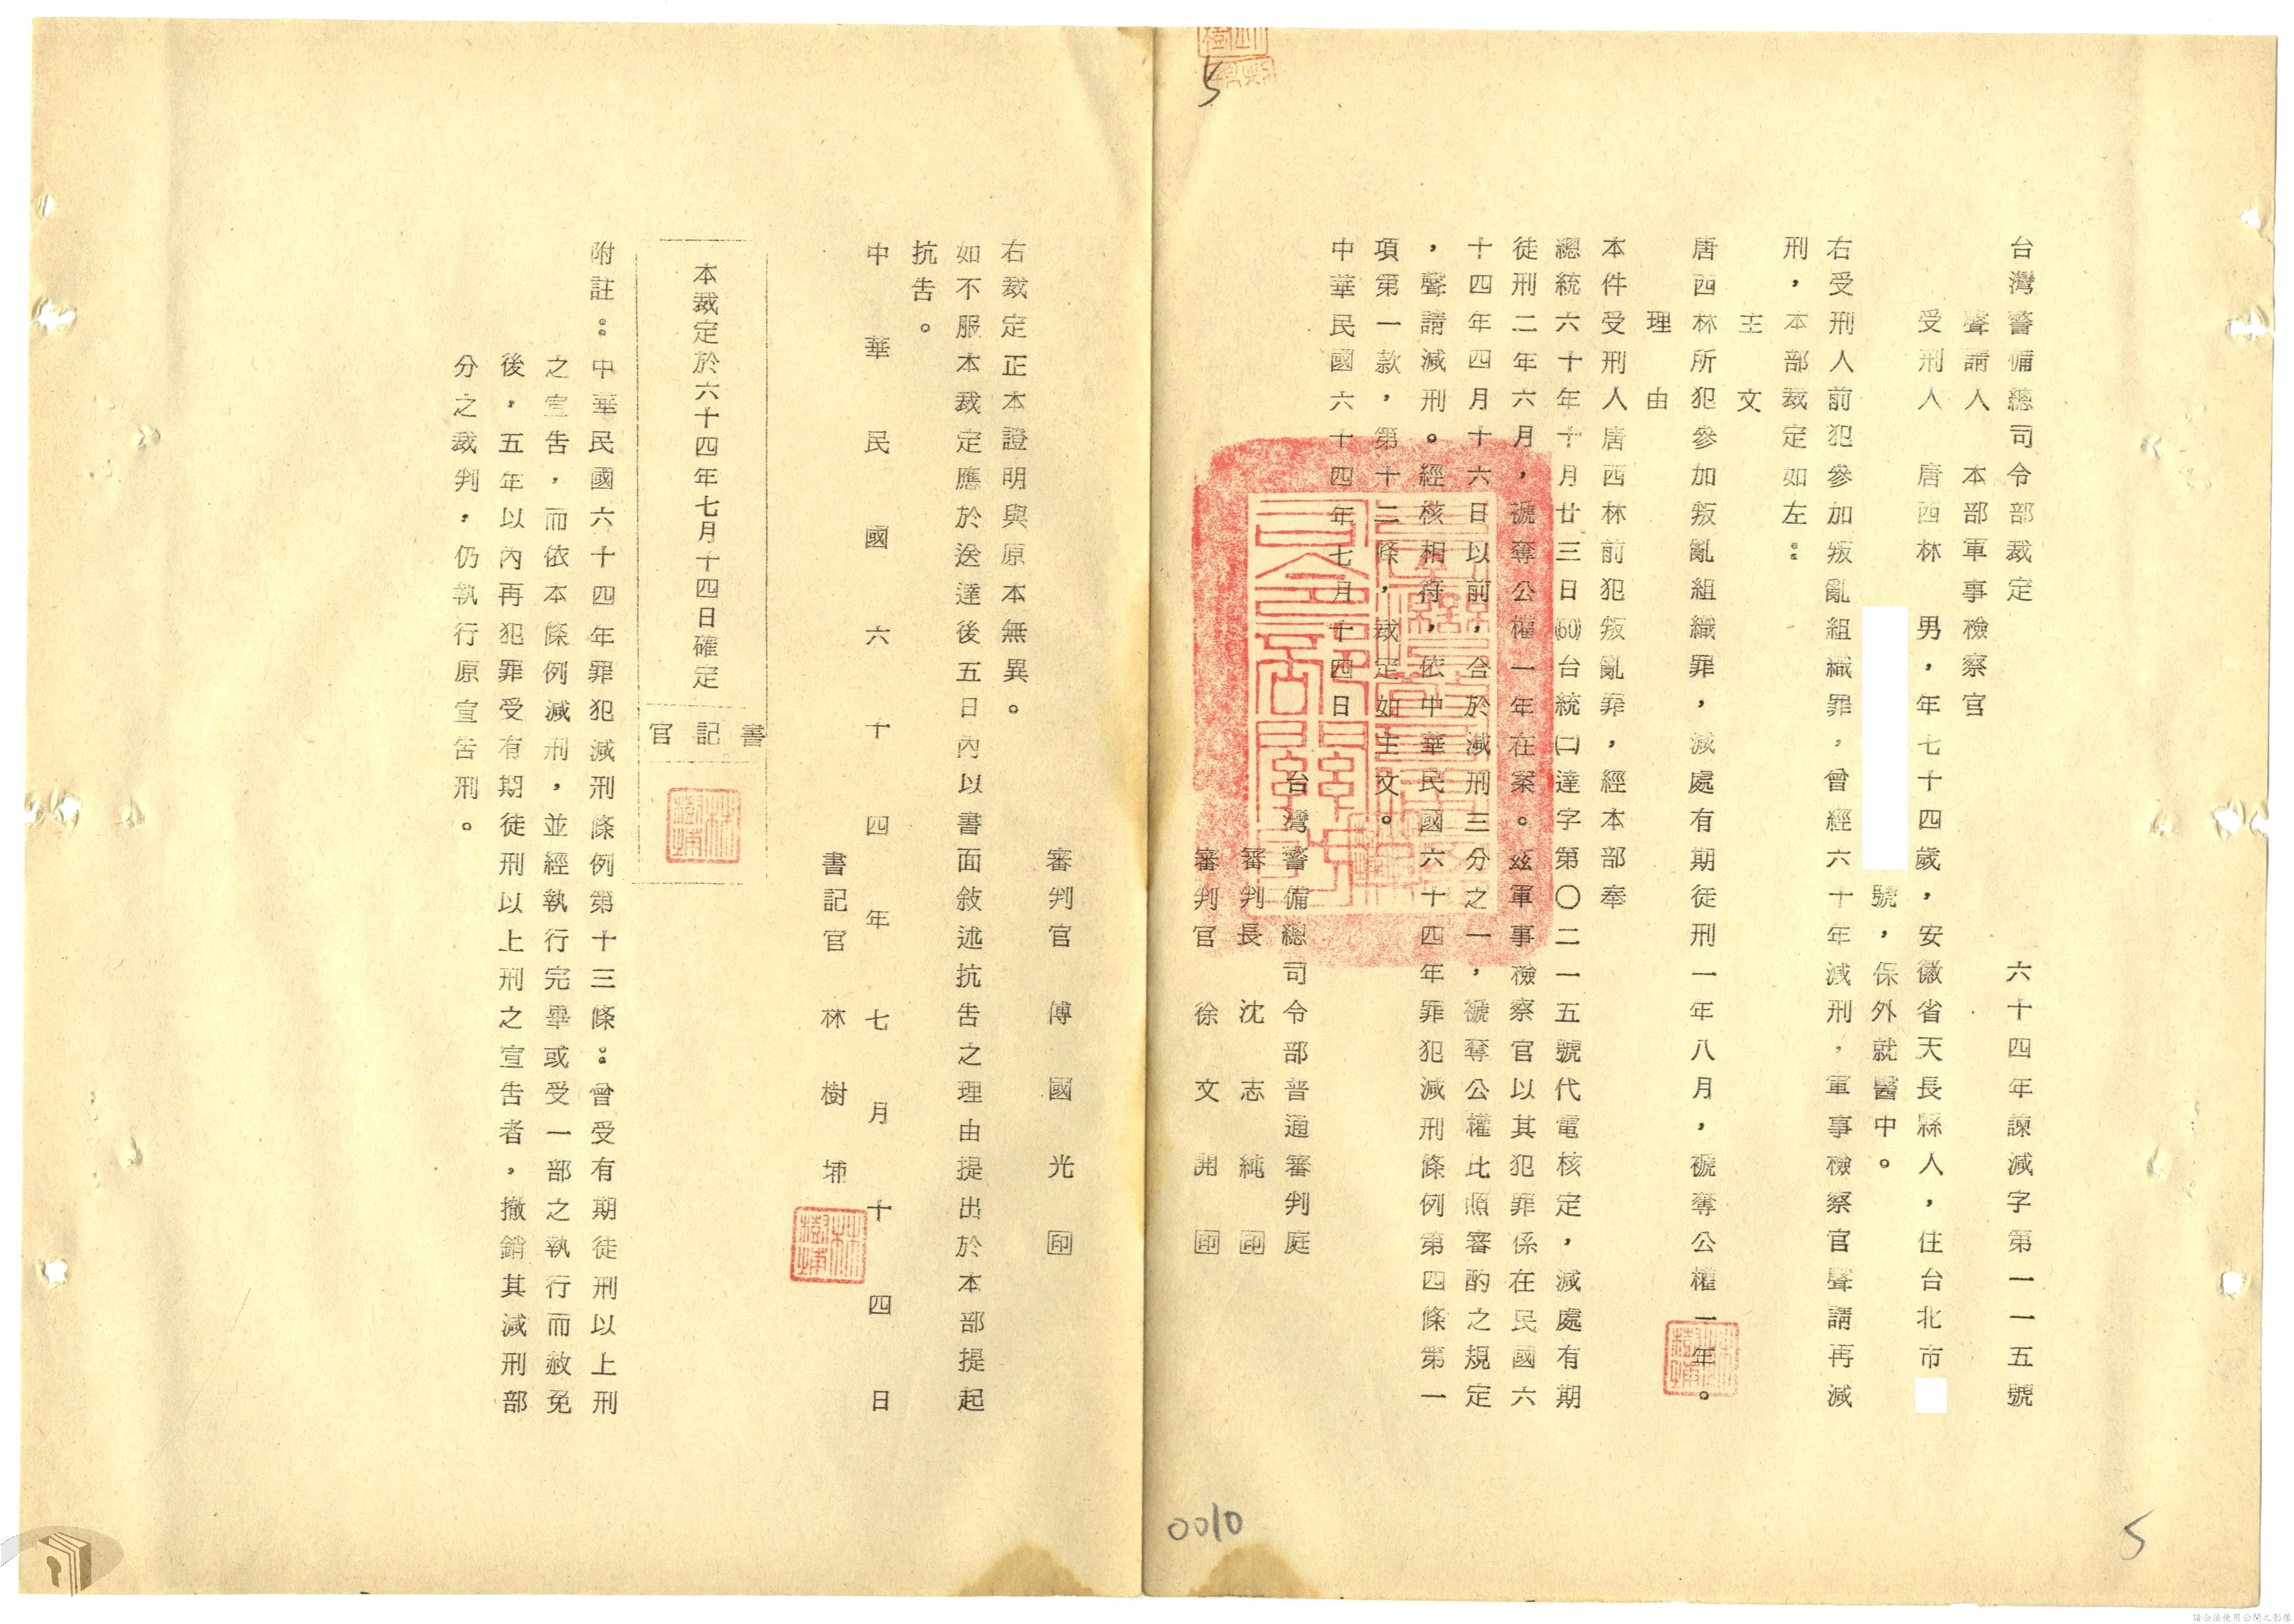 台灣警備總司令部裁定　六十四年諫減字第一一五號
聲請人　本部軍事檢察官
受刑人　唐西林　男，年七十四歲，安徽省天長縣人，住台北市
號，保外就醫中。
右受刑人前犯參加叛亂組織罪，曾經六十年減刑，軍事檢察官聲請再減
刑，本部裁定如左：
主文
唐西林所犯參加叛亂組織罪，減處有期徒刑一年八月，褫奪公權一年。
理由
本件受刑人唐西林前犯叛亂罪，經本部奉
總統六十年十月廿三日(60)台統(二)達字第〇二一五號代電核定，減處有期
徒刑二年六月，褫奪公權一年在案。茲軍事檢察官以其犯罪係在民國六
十四年四月十六日以前，合於減刑三分之一，褫奪公權比照審酌之規定
，聲請減刑。經核相符，依中華民國六十四年罪犯減刑條例第四條第一
項第一款，第十二條，裁定如主文。
中華民國六十四年七月十四日
台灣警備總司令部普通審判庭
審判長　沈志純　印
審判官　徐文開　印
審判官　傅國光　印
右裁定正本證明與原本無異。
如不服本裁定應於送達後五日內以書面敘述抗告之理由提出於本部提起
抗告。
中華民國六十四年七月十四日
書記官　林樹埔
林樹埔
本裁定於六十四年七月十四日確定
書記官
林樹埔
附註：中華民國六十四年罪犯減刑條例第十三條：曾受有期徒刑以上刑
之宣告，而依本條例減刑，並經執行完畢或受一部之執行而赦免
後，五年以內再犯罪受有期徒刑以上刑之宣告者，撤銷其減刑部
分之裁判，仍執行原宣告刑。
0010
5
5
請合法使用公開之影像